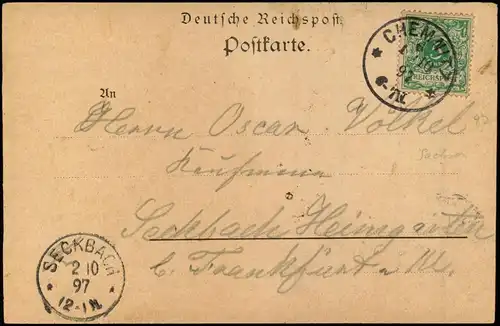 Deutsche Reichspost.
Postkarte.
CHEMNITZ
1 10
97
6-7N.
REICHSPOST
An
Herrn Oscar Völkel
Kaufmann
Sachsen
Seckbach
b. Frankfurt a. M.
SECKBACH
2 10
97
12-1N